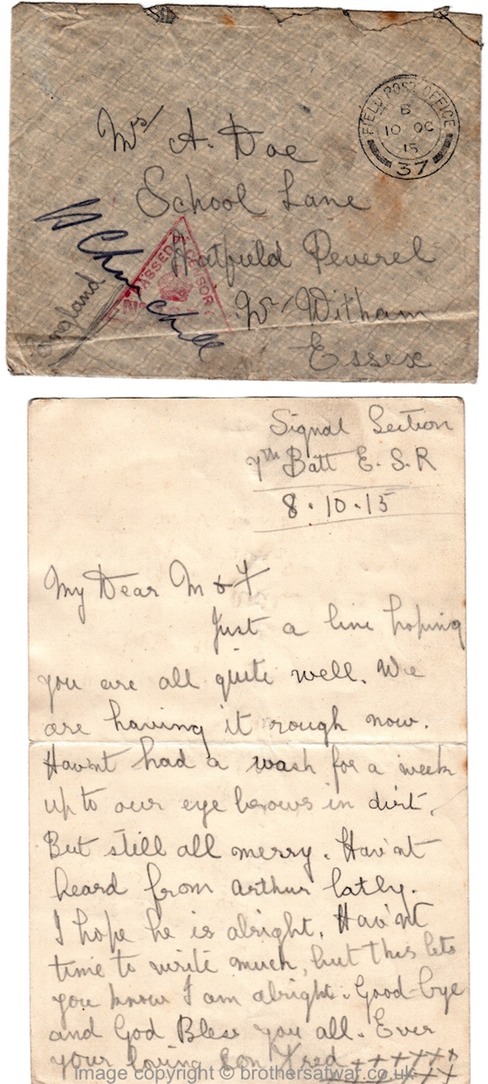 FIELD POST OFFICE
10 OC
15
37
Mrs A. Doe
School Lane
Hatfield Peverel
Nr Witham
Essex
England
PASSED CENSOR
Churchill
Signal Section
7th Batt E.S.R
8.10.15
My Dear M & F
Just a line hoping
you are all quite well. We
are having it rough now.
Havnt had a wash for a week
up to our eye brows in dirt.
But still all merry. Hav'nt
heard from Arthur latly.
I hope he is alright. Hav'nt
time to write much, but this lets
you know I am alright. Good-bye
and God Bless you all. Ever
your loving Son Fred ++++++
++
Image copyright © brothersatwar.co.uk